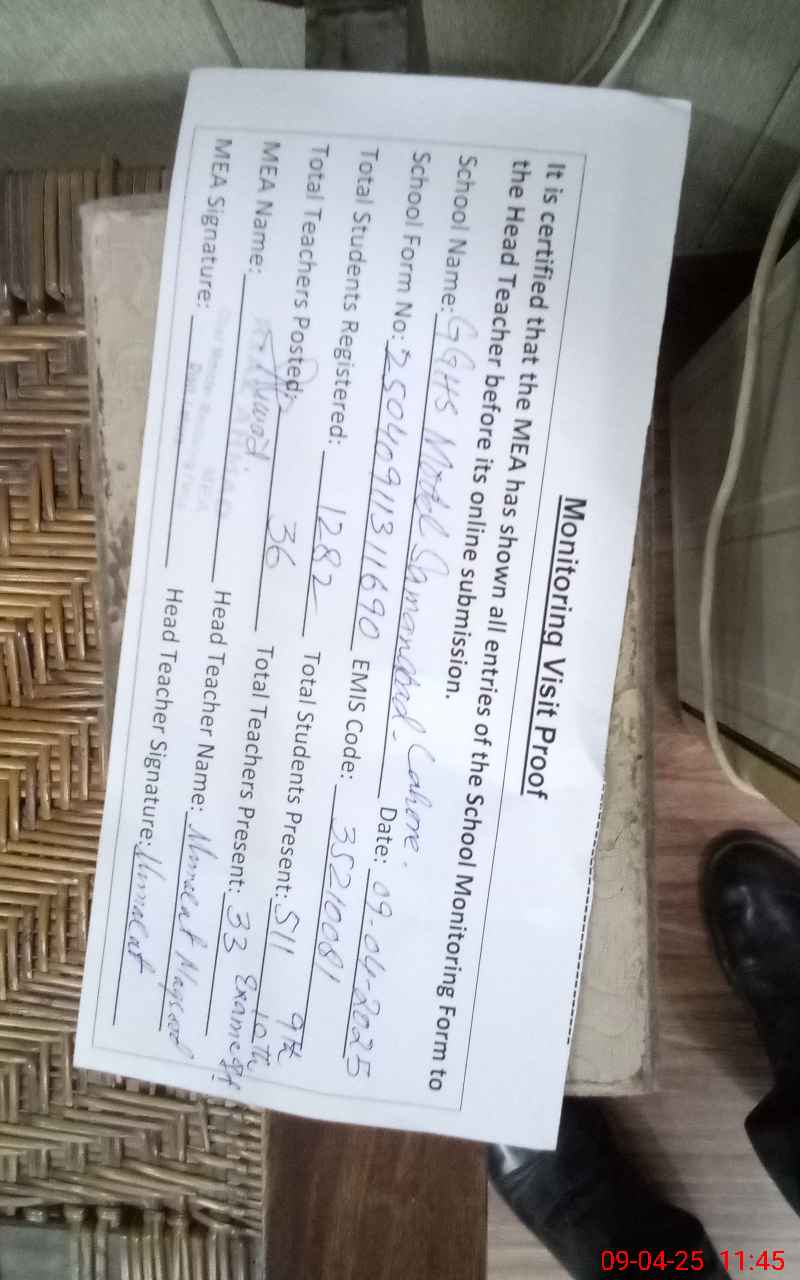 Monitoring Visit Proof
It is certified that the MEA has shown all entries of the School Monitoring Form to
the Head Teacher before its online submission.
School Name: GGHS Model Samanabad Lahore.
School Form No: 2504091131 1690 Date: 09-04-2025
Total Students Registered: 1282 EMIS Code: 35210081
Total Teachers Posted: 36 Total Students Present: 511 9th
MEA Name: Total Teachers Present: 33 10th Exams
MEA Signature: Head Teacher Name:
Head Teacher Signature:
09-04-25 11:45